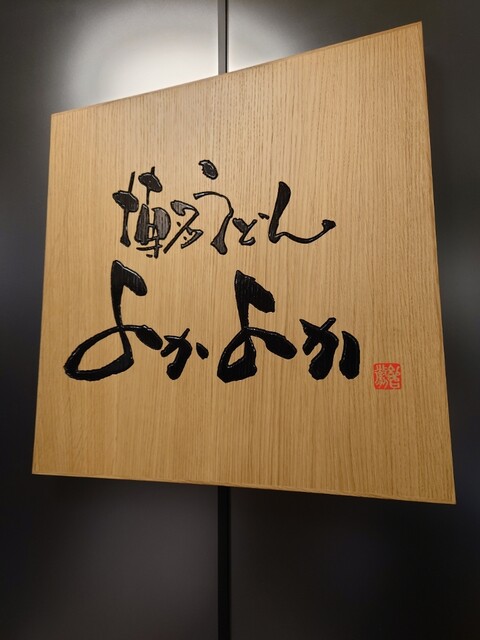 博多うどん
よかよか